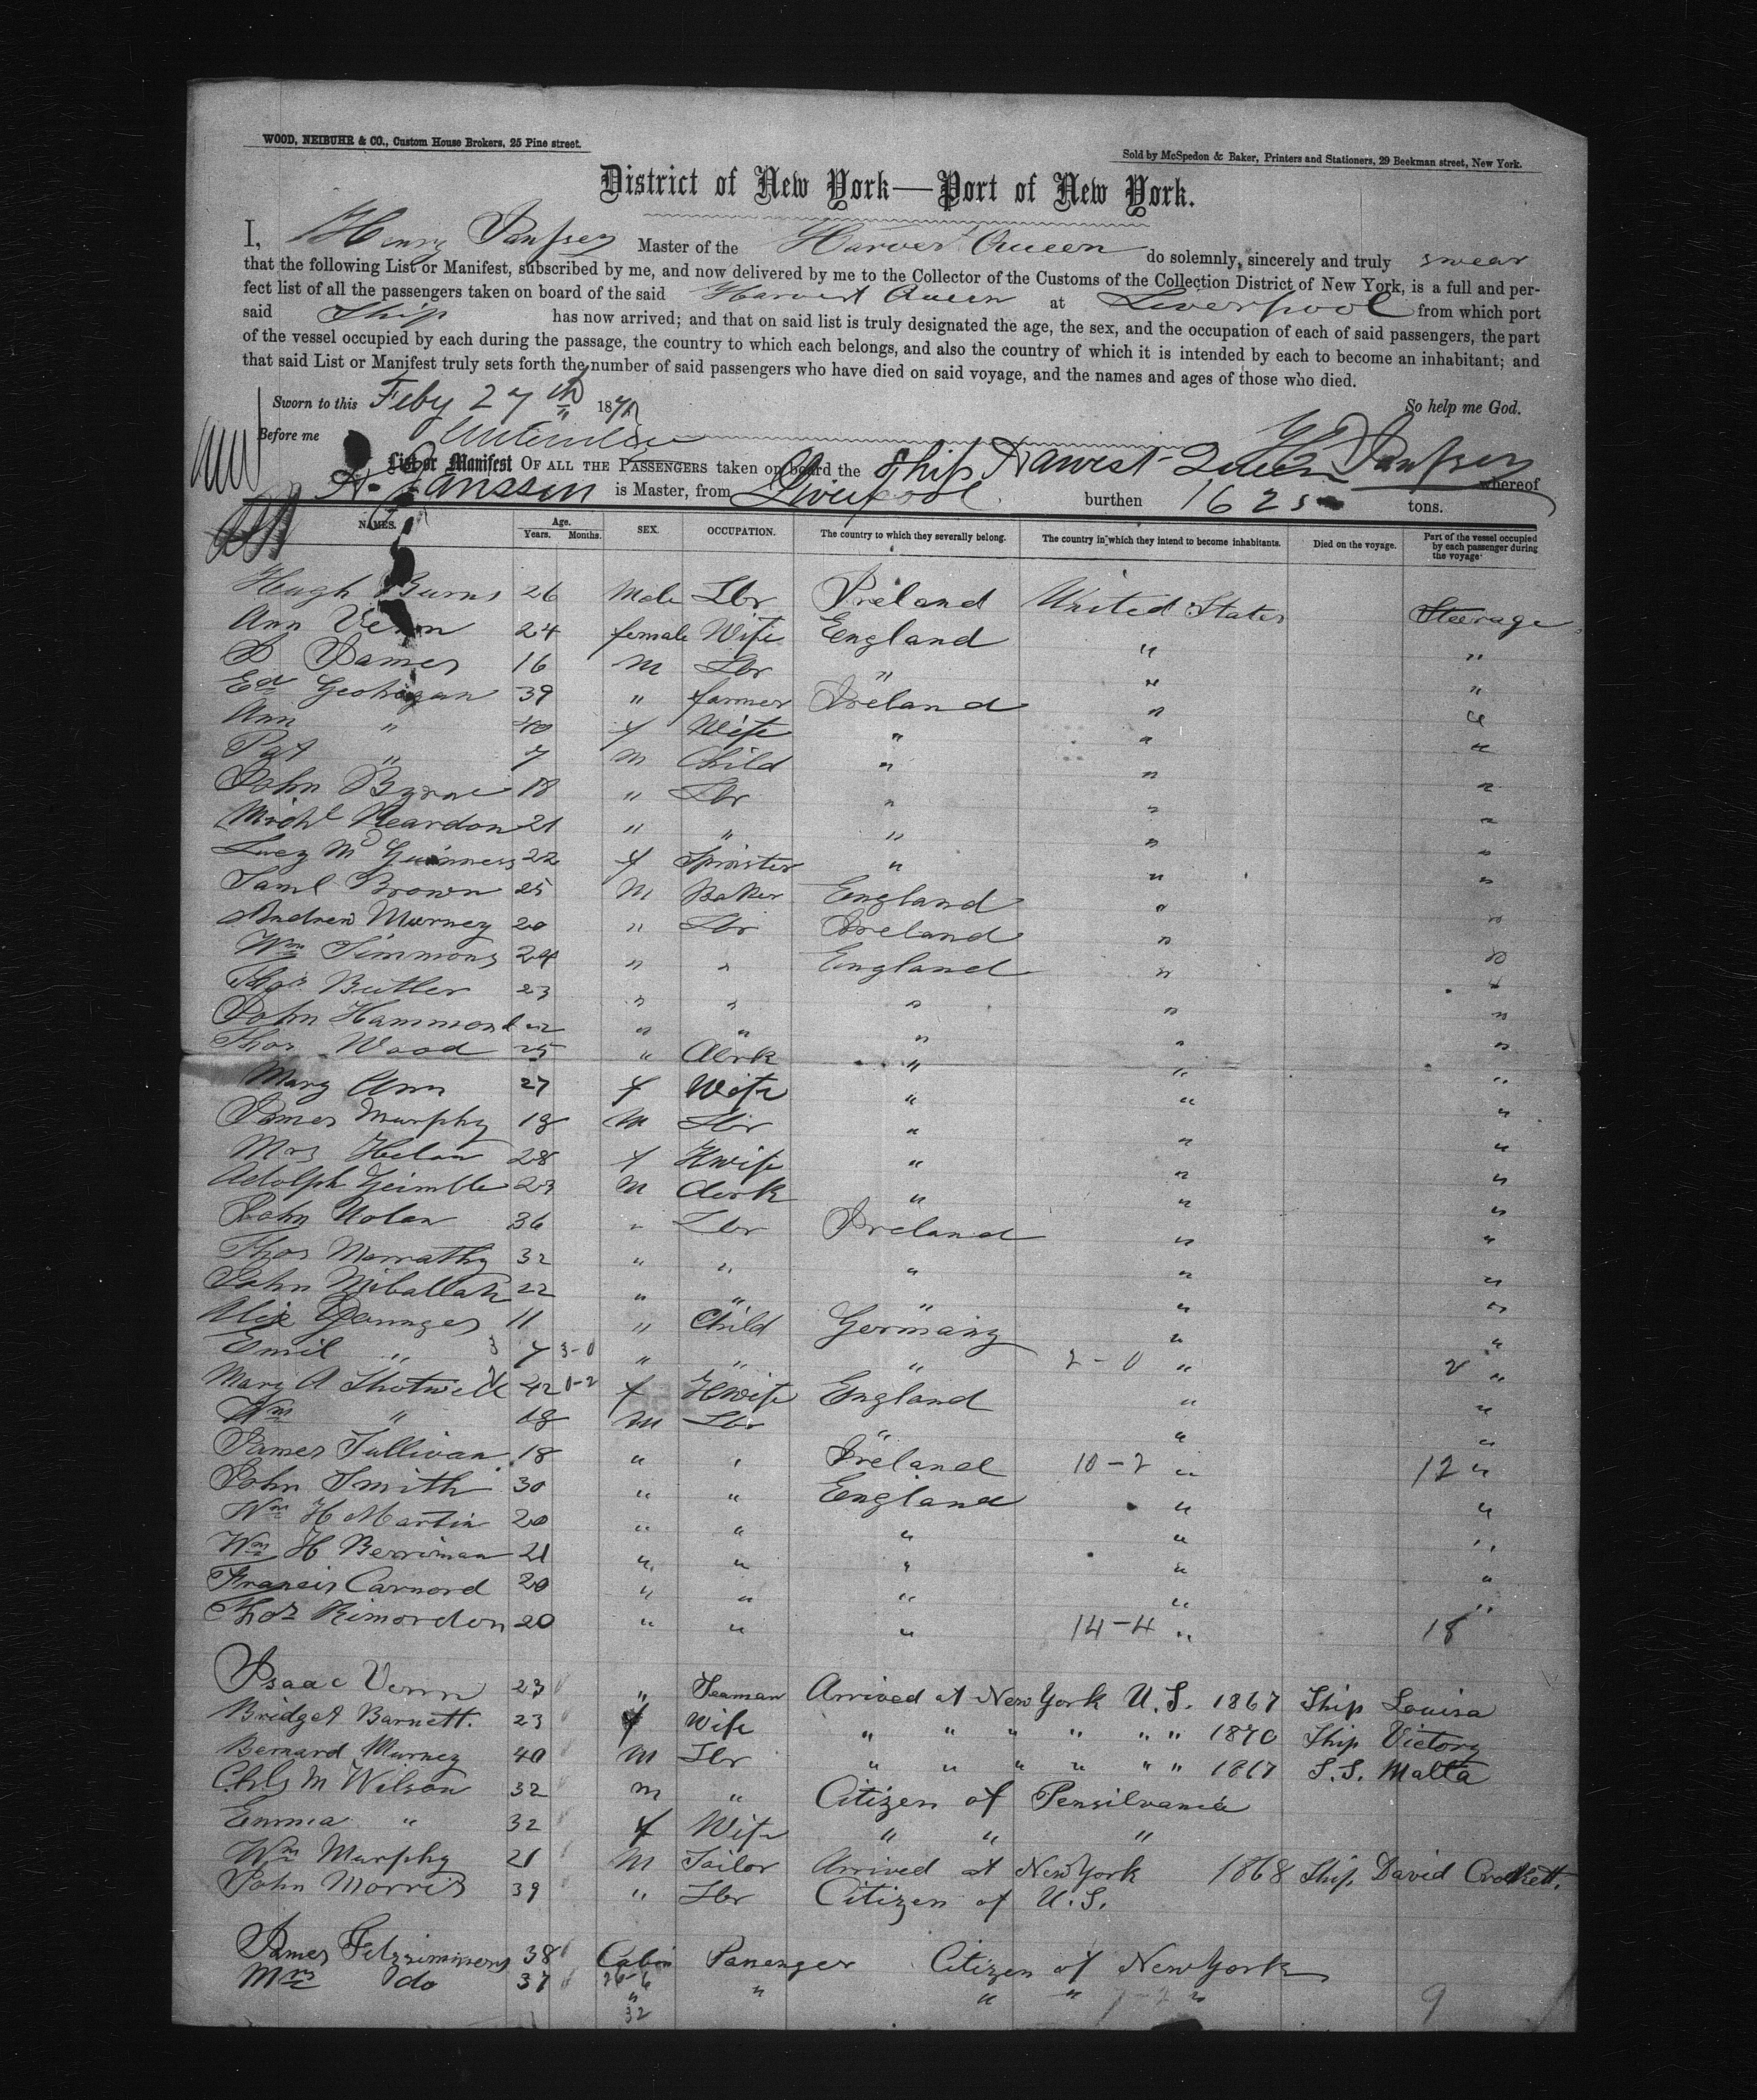 WOOD, NEIBUHR & CO., Custom House Brokers, 25 Pine street.
Sold by McSpedon & Baker, Printers and Stationers, 29 Beekman street, New York.
District of New York—Port of New York.
I, Henry Janssen Master of the Harvest Queen do solemnly, sincerely and truly swear
that the following List or Manifest, subscribed by me, and now delivered by me to the Collector of the Customs of the Collection District of New York, is a full and per-
fect list of all the passengers taken on board of the said Harvest Queen at Liverpool from which port
said Ship has now arrived; and that on said list is truly designated the age, the sex, and the occupation of each of said passengers, the part
of the vessel occupied by each during the passage, the country to which each belongs, and also the country of which it is intended by each to become an inhabitant; and
that said List or Manifest truly sets forth the number of said passengers who have died on said voyage, and the names and ages of those who died.
Sworn to this Feby 27th 1871 So help me God.
Before me H Janssen
List or Manifest OF ALL THE PASSENGERS taken on board the Ship Harvest Queen whereof
H. Janssen is Master, from Liverpool burthen 1625 tons.
NAMES. Age. Years. Months. SEX. OCCUPATION. The country to which they severally belong. The country in which they intend to become inhabitants. Died on the voyage. Part of the vessel occupied by each passenger during the voyage
Hugh Burns 26 Male Lbr Ireland United States Steerage
Ann Venn 24 female Wife England " "
D James 16 M Lbr " " "
Ed Geohigan 39 " farmer Ireland " "
Ann " 40 f Wife " " "
Pat " 7 M Child " " "
John Byrne 18 " Lbr " " "
Michl Reardon 21 " " " " "
Lucy McGuinness 22 f Spinster " " "
Saml Brown 25 M Baker England " "
Andrew Murney 20 " Lbr Ireland " "
Wm Simmons 24 " " England " "
Thos Butler 23 " " " " "
John Hammond 22 " " " " "
Thos Wood 25 " Clerk " " "
Mary Ann 27 f Wife " " "
James Murphy 18 M Lbr " " "
Mrs Helan 28 f Hwife " " "
Adolph Geimble 23 M Clerk " " "
John Nolan 36 " Lbr Ireland " "
Thos Merrathy 32 " " " " "
John 22 " " " " "
Alex Younges 11 " Child Germany " "
Emil " 3 7 3-0 " " " 2-0 " 2 "
Mary A Shotwell 42 0-2 f Hwife England " "
Wm " 18 M Lbr " " "
James Sullivan 18 " " Ireland 10-2 " 12 "
John Smith 30 " " England " "
Wm H Martin 20 " " " " "
Wm H Berriman 21 " " " " "
Francis Carnord 20 " " " " "
Thos Rimordon 20 " " " 14-4 " 18
Isaac Venn 23 " Seaman Arrived at New York U.S. 1867 Ship Louisa
Bridget Barnett. 23 f Wife " " " " " " 1870 Ship Victory
Bernard Murney 40 M Lbr " " " " " " 1867 S.S. Malta
Chls M Wilson 32 m " Citizen of Pensilvania
Emma " 32 f Wife " " "
Wm Murphy 21 M Tailor Arrived at New York 1868 Ship David Crockett.
John Morris 39 " Lbr Citizen of U.S.
James Fitzsimmons 38 Cabin Passenger Citizen of New York
Mrs do 37 26-6 " " " " 7-2 " 9
32